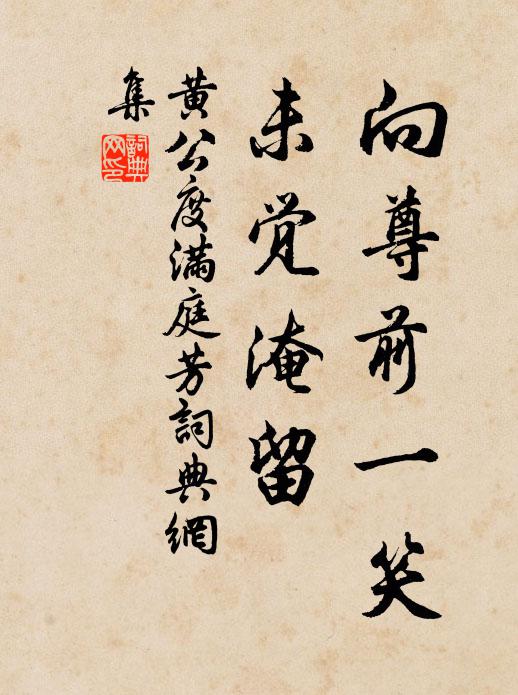 向尊前一笑
未觉淹留
黄公度满庭芳詞典網
集
詞典網印